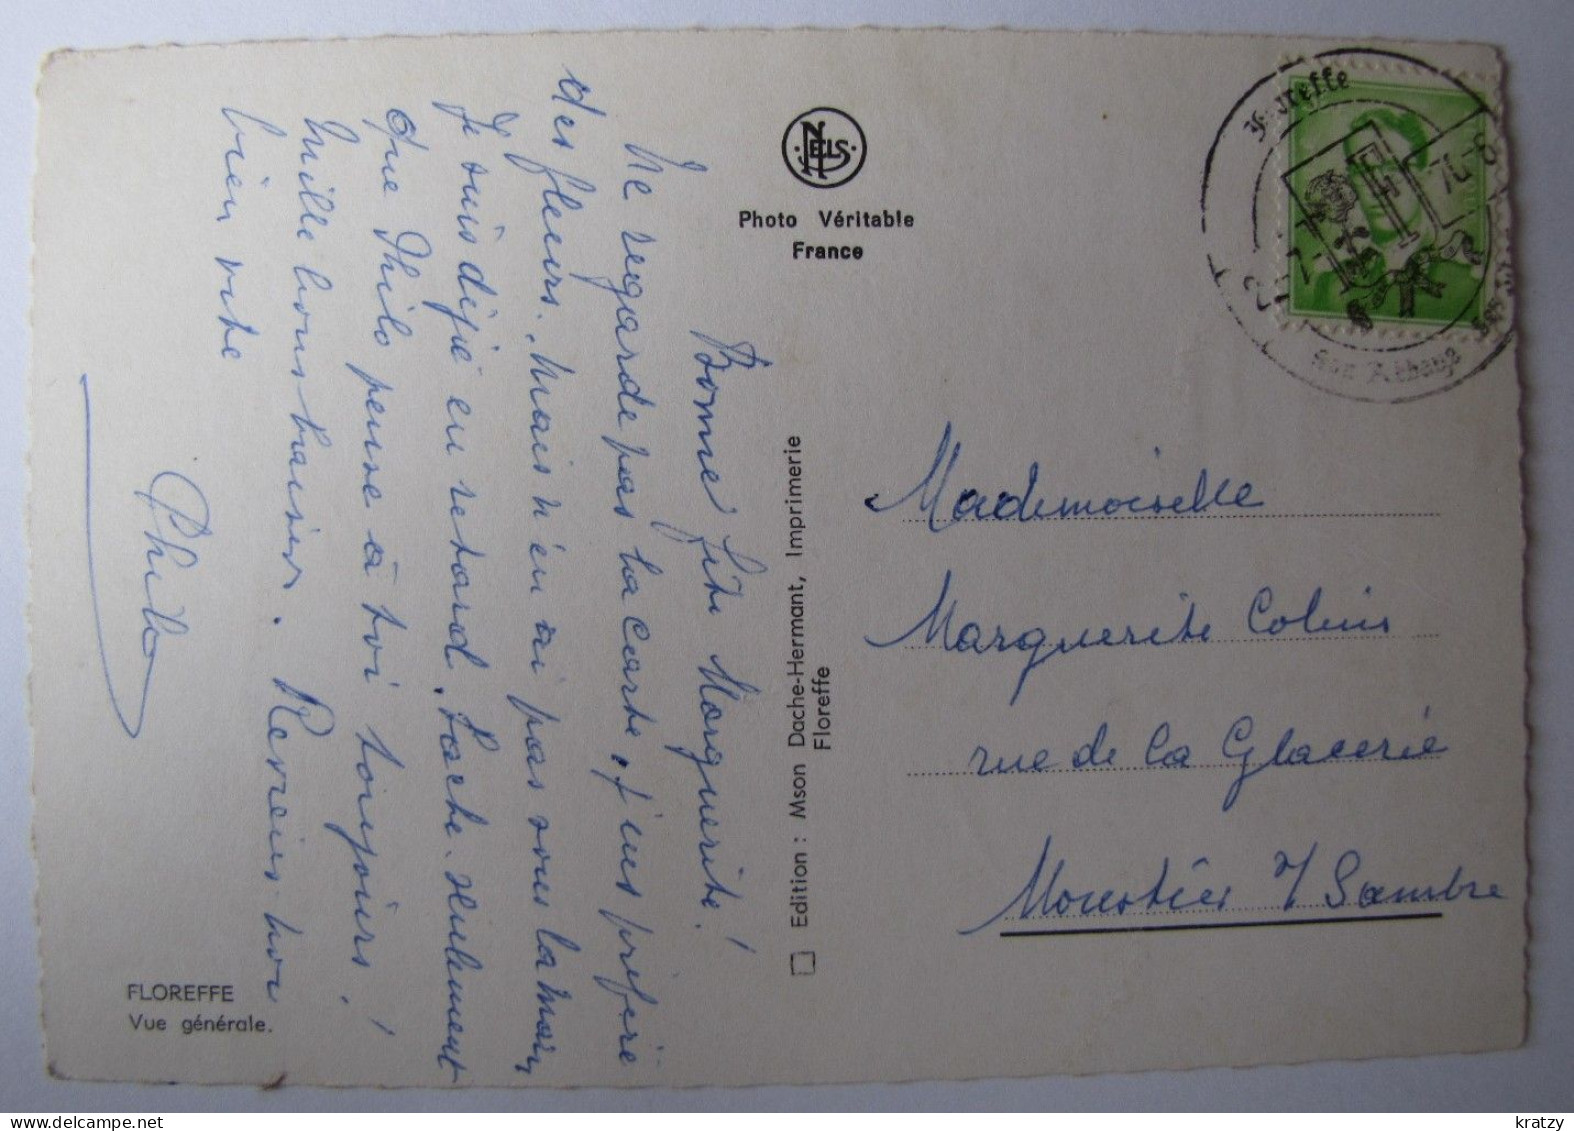 Bonne fête Marguerite!
Ne regarde pas la carte, j'eus préféré
des fleurs. Mais n'en ai pas sous la main,
je suis déjà en retard. Sache seulement
que Philo pense à toi toujours!
Mille bons baisers. Reviens-nous
bien vite
Philo
FLOREFFE
Vue générale.
NELS
Photo Véritable
France
Edition : Mson Dache-Hermant, Imprimerie
Floreffe
Floreffe
Son Abbaye
Mademoiselle
Marguerite Colin
rue de la Glacerie
Moustier s/ Sambre
www.delcampe.net
kratzy